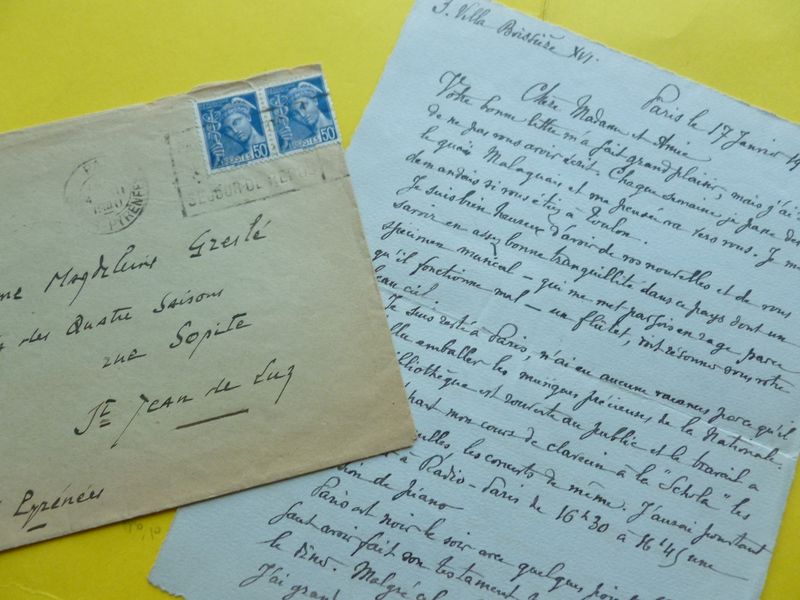 POSTES 50
POSTES 50
PYRÉNÉES
Magdeleine Greslé
des Quatre Saisons
rue Sopite
St Jean de Luz
Pyrénées
5. Villa Boissière XVI.
Paris le 17 Janvier
Chère Madame et Amie
Votre bonne lettre m'a fait grand plaisir, mais j'ai
de ne pas vous avoir écrit. Chaque semaine, je passe
le quai Malaquais et ma pensée va vers vous. Je me
demandais si vous étiez à Toulon.
Je suis bien heureux d'avoir de vos nouvelles et de vous
savoir en assez bonne tranquillité dans ce pays dont un
specimen musical – qui me met parfois en rage, parce
qu'il fonctionne mal – un flûtet, doit résonner sous votre
beau ciel.
Je suis resté à Paris, n'ai eu aucune vacances parce qu'il
emballer les musiques précieuses de la Nationale.
bibliothèque est rouverte au public et le travail a
part mon cours de clavecin à la "Schola" les
les concerts de même. J'aurai pourtant
à Radio-Paris de 16h30 à 16h45 une
de piano
Paris est noir le soir avec quelques
faut avoir fait son testament
le dîner. Malgré
J'ai